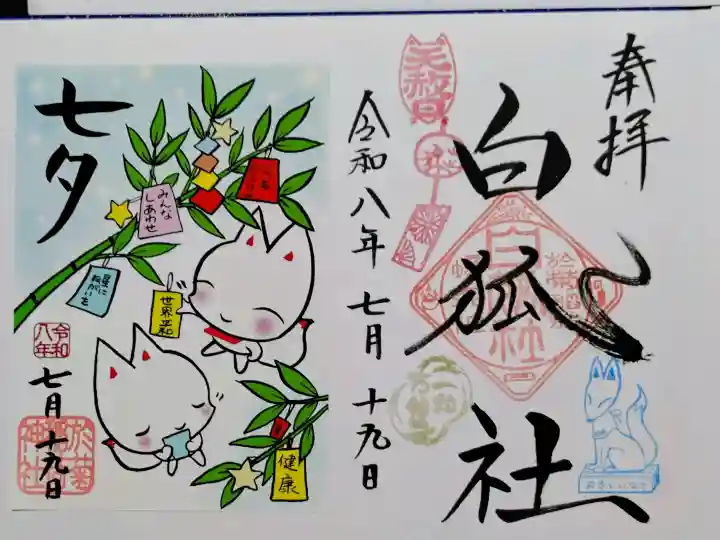 奉拝
白狐社
令和八年 七月 十九日
七夕
みんな
しあわせ
星に
ねがいを
世界平和
健康
令和
八年
七月十九日